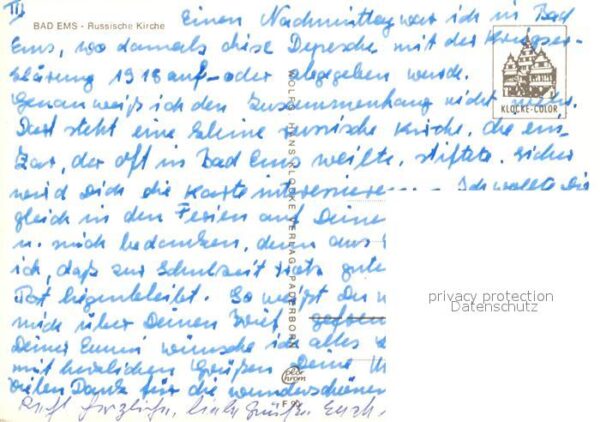 III
BAD EMS - Russische Kirche
Einen Nachmittag war ich in Bad
Ems, wo damals diese Depesche mit der Kriegser-
klärung 1918 auf- oder abgegeben wurde.
Genau weiß ich den Zusammenhang nicht mehr.
Dort steht eine kleine russische Kirche, die ein
Zar, der oft in Bad Ems weilte, stiftete. Sicher
wird Dich die Karte interessieren... Ich wollte Dir
gleich in den Ferien auf Deine
u. mich bedanken, denn aus
ich, daß zur Schulzeit stets gute
Post liegenbleibt. So weißt Du
mich über Deinen Brief gefreut
Deiner wünsche ich alles
mit herzlichen Grüßen Deine
Vielen Dank für die wunderschönen
Recht herzliche, liebe Grüße Euch
KLOCKE-COLOR
FOTO U. HENS. KLOCKE VERLAG PADERBORN
color
chrom
privacy protection
Datenschutz